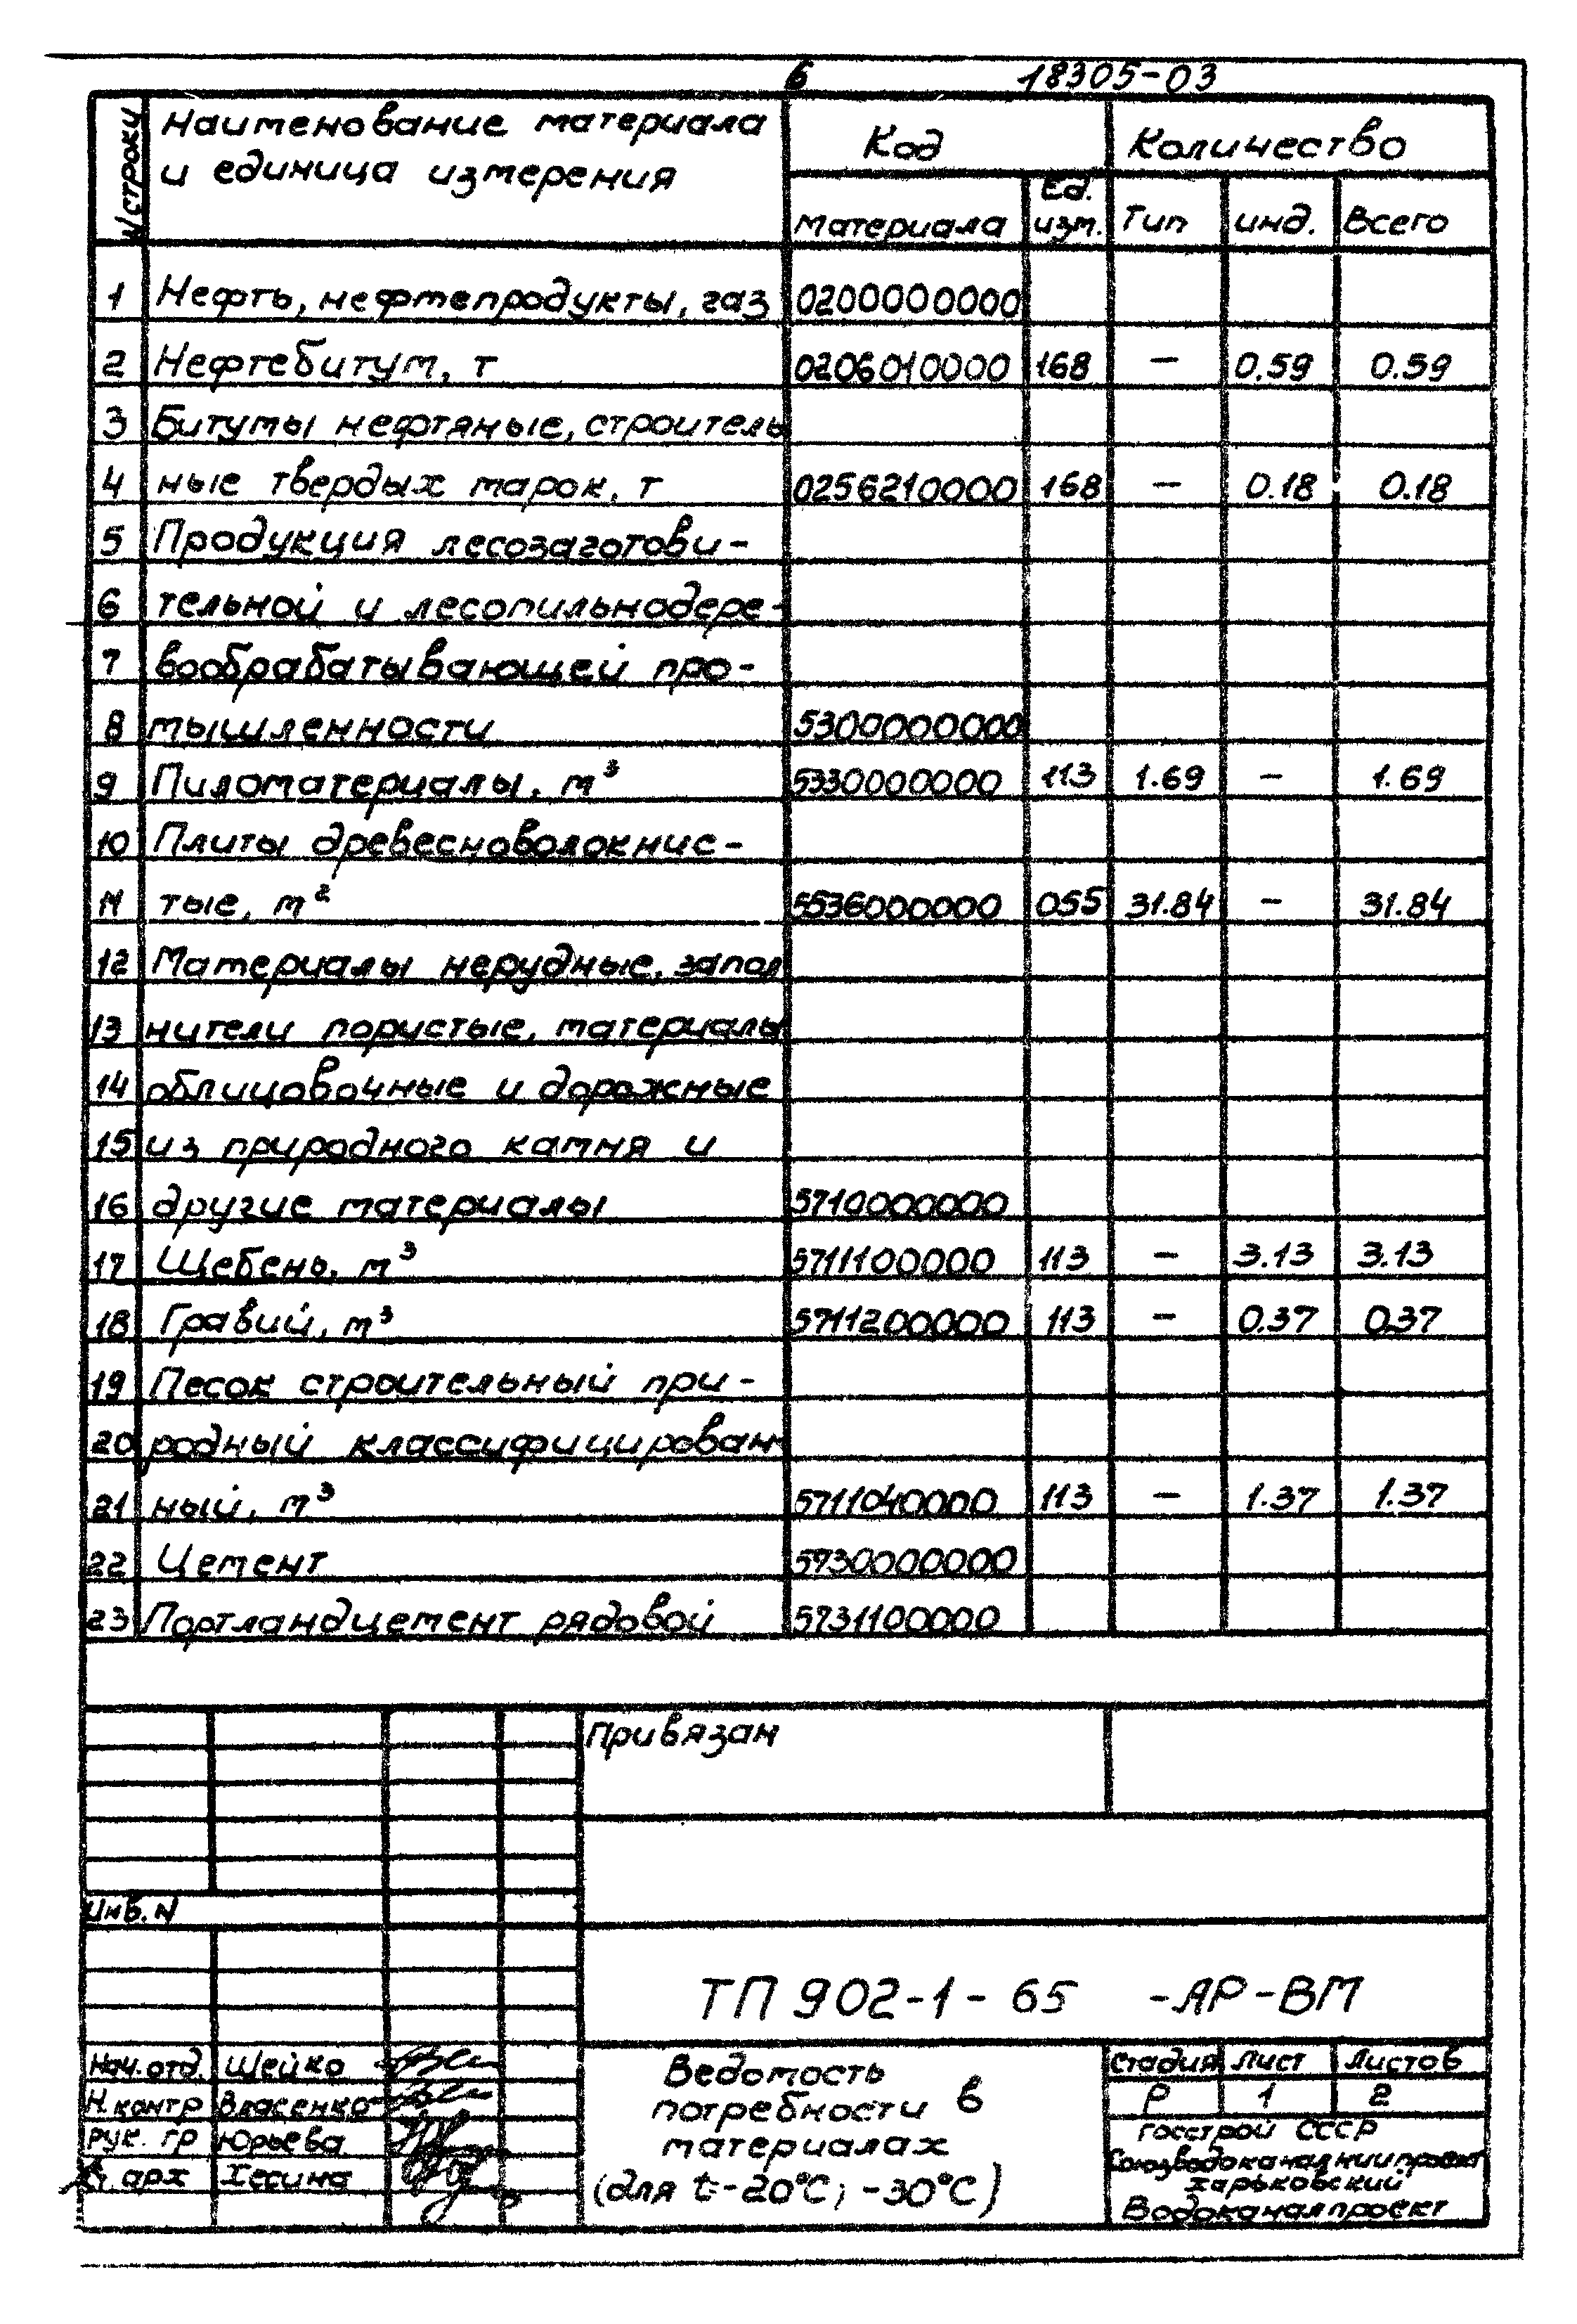 6 18305-03
N строки
Наименование материала
и единица измерения
Код
Количество
материала
Ед.
изм.
Тип
инд.
Всего
1 Нефть, нефтепродукты, газ 0200000000
2 Нефтебитум, т 0206010000 168 — 0.59 0.59
3 Битумы нефтяные, строитель
4 ные твердых марок, т 0256210000 168 — 0.18 0.18
5 Продукция лесозаготови-
6 тельной и лесопильнодере-
7 вообрабатывающей про-
8 мышленности 5300000000
9 Пиломатериалы, м³ 5330000000 113 1.69 — 1.69
10 Плиты древесноволокнис-
11 тые, м² 5536000000 055 31.84 — 31.84
12 Материалы нерудные, запол
13 нители пористые, материалы
14 облицовочные и дорожные
15 из природного камня и
16 другие материалы 5710000000
17 Щебень, м³ 5711100000 113 — 3.13 3.13
18 Гравий, м³ 5711200000 113 — 0.37 0.37
19 Песок строительный при-
20 родный классифицирован-
21 ный, м³ 5711040000 113 — 1.37 1.37
22 Цемент 5730000000
23 Портландцемент рядовой 5731100000
Привязан
Инв. N
ТП 902-1-65 -АР-ВМ
Нач. отд. Шейко
Н. контр Власенко
Рук. гр Юрьева
арх Хесина
Ведомость
потребности в
материалах
(для t=-20°С; -30°С)
стадия лист листов
Р 1 2
Госстрой СССР
Союзводоканалниипроект
Харьковский
Водоканалпроект